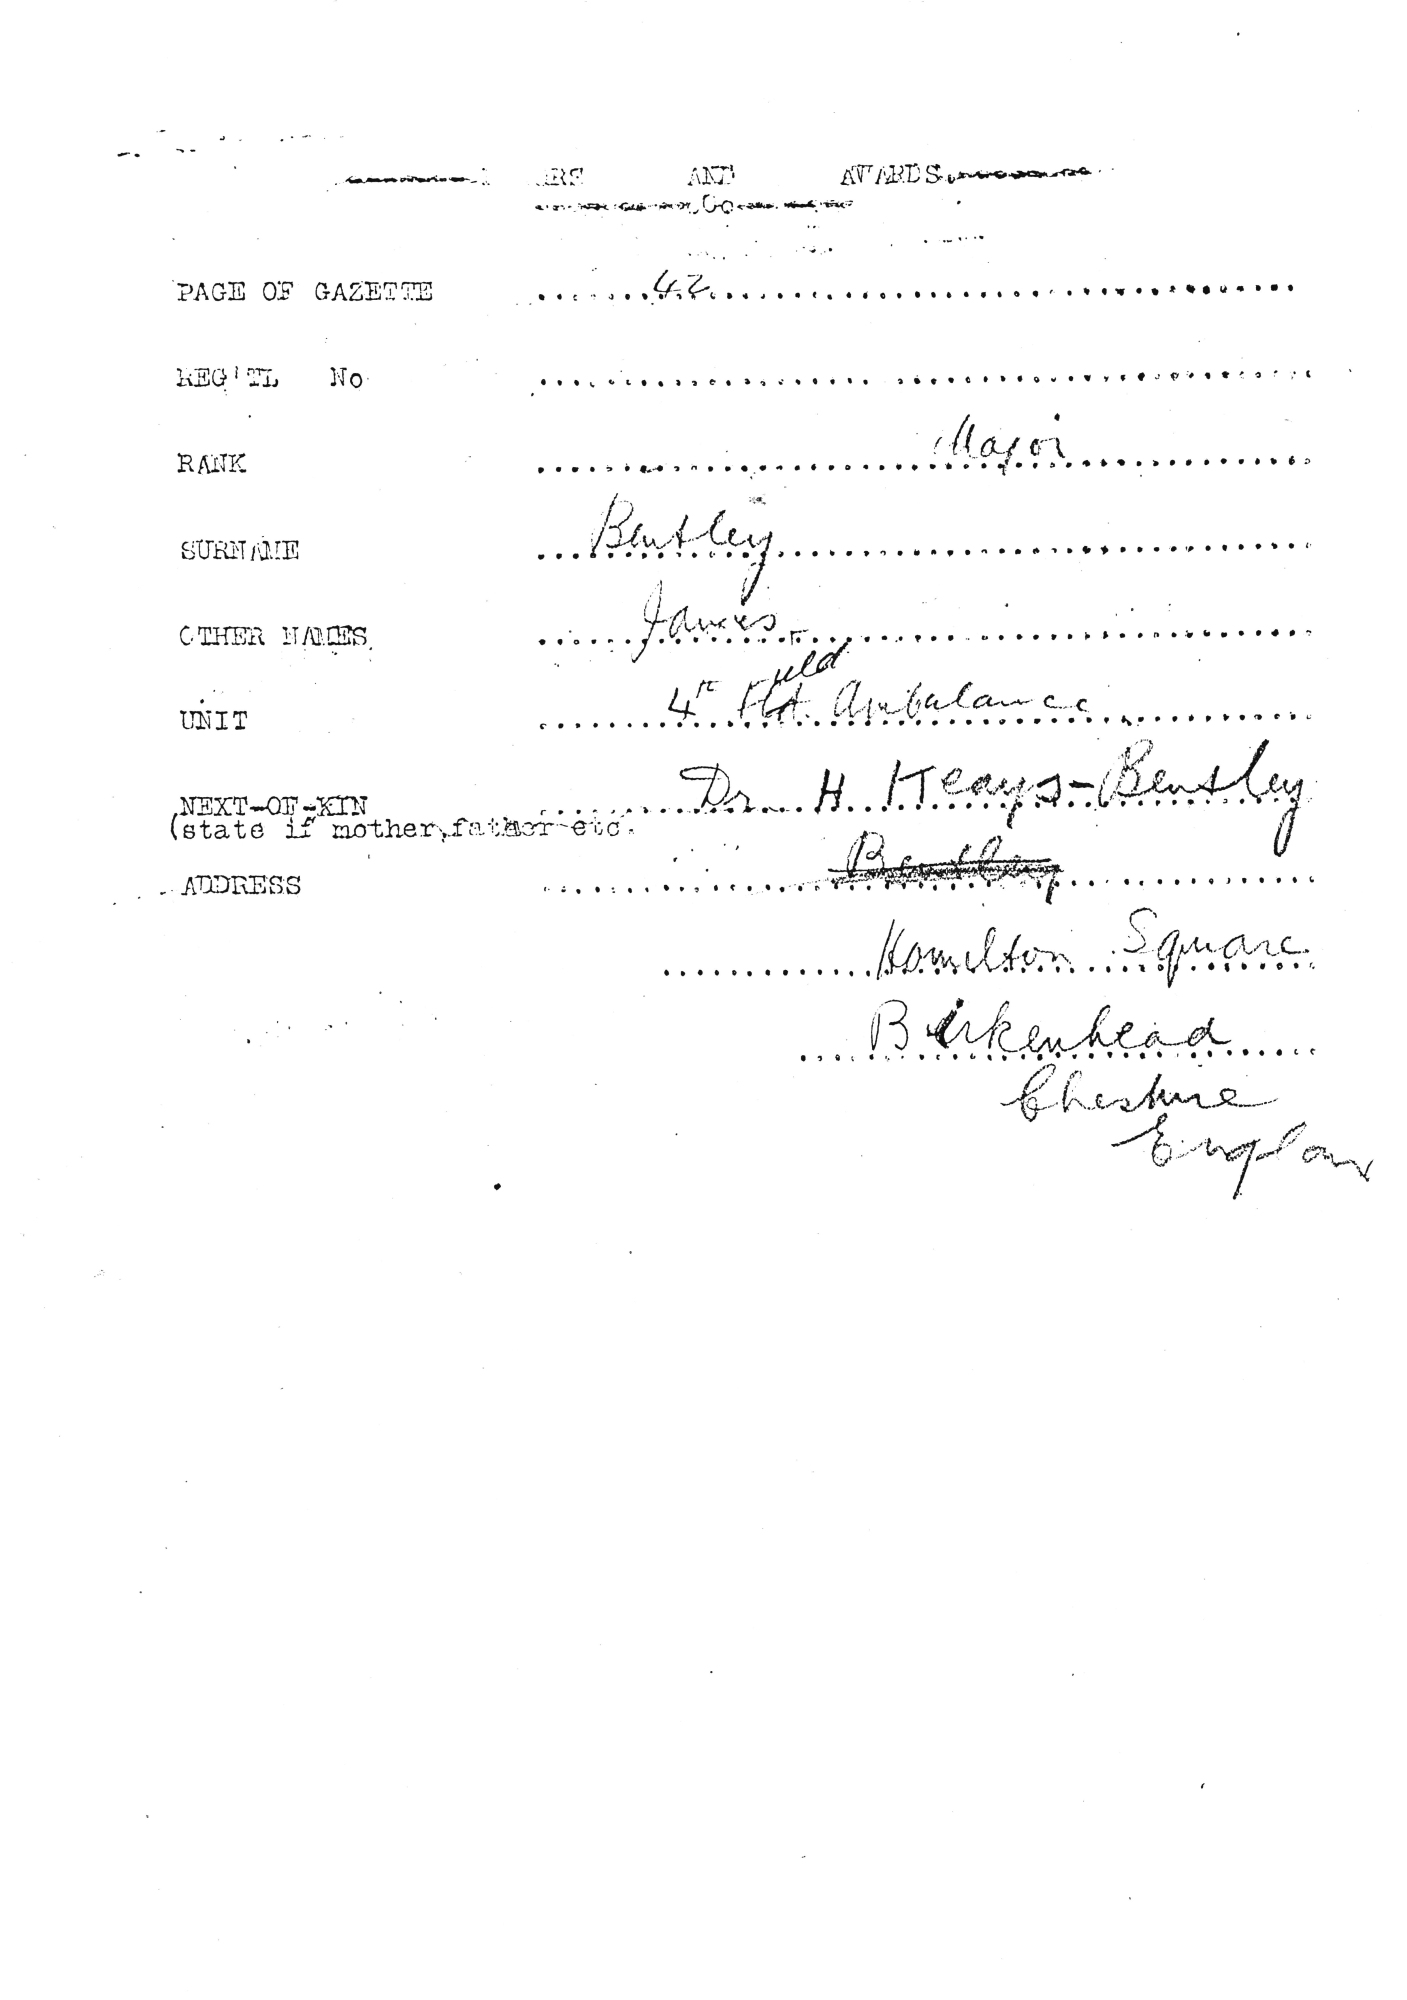 AND AWARDS
PAGE OF GAZETTE 42
REG'TL No
RANK Major
SURNAME Bentley
OTHER NAMES James
UNIT 4th Field Ambulance
NEXT-OF-KIN Dr. H Keays-Bentley
(state if mother, father etc.
ADDRESS Bentley
Hamilton Square
Birkenhead
Cheshire
England